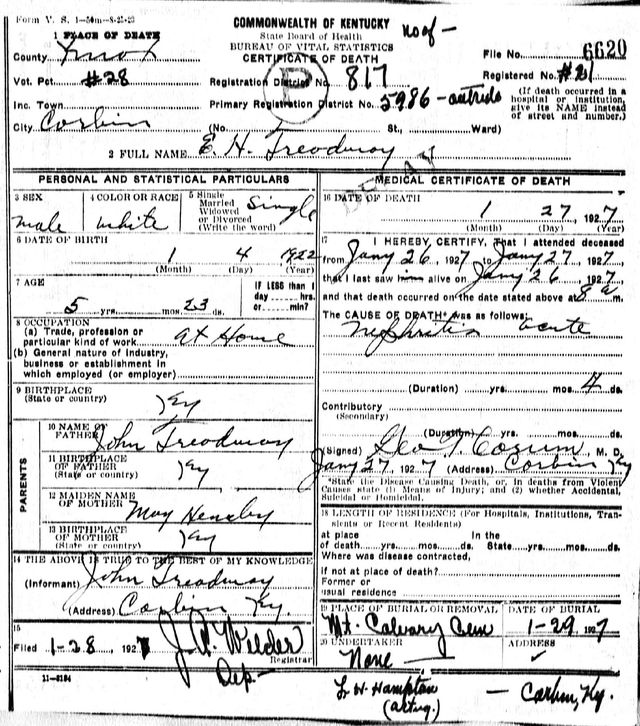 Form V. S. 1—50m—8-25-23
COMMONWEALTH OF KENTUCKY
State Board of Health
BUREAU OF VITAL STATISTICS
CERTIFICATE OF DEATH
1 PLACE OF DEATH
County Knox
File No. 6620
Vot. Pct #28
Registration District No. 817
Registered No. #21
Inc. Town
Primary Registration District No. 5986 - outside
(If death occurred in a hospital or institution, give its NAME instead of street and number.)
City Corbin (No. St., Ward)
2 FULL NAME E. H. Treadway
PERSONAL AND STATISTICAL PARTICULARS
3 SEX male
4 COLOR OR RACE white
5 Single Married Widowed or Divorced (Write the word) Single
6 DATE OF BIRTH 1 4 1922
(Month) (Day) (Year)
7 AGE 5 yrs. mos. 23 ds.
IF LESS than 1 day hrs. or min?
8 OCCUPATION
(a) Trade, profession or particular kind of work at Home
(b) General nature of industry, business or establishment in which employed (or employer)
9 BIRTHPLACE (State or country) Ky
PARENTS
10 NAME OF FATHER John Treadway
11 BIRTHPLACE OF FATHER (State or country) Ky
12 MAIDEN NAME OF MOTHER May Hensley
13 BIRTHPLACE OF MOTHER (State or country) Ky
14 THE ABOVE IS TRUE TO THE BEST OF MY KNOWLEDGE
(Informant) John Treadway
(Address) Corbin Ky.
15
Filed 1-28 1927 J. A. Wilder
Registrar
Dep-
11-3184
MEDICAL CERTIFICATE OF DEATH
16 DATE OF DEATH
1 27, 1927
(Month) (Day) (Year)
17 I HEREBY, CERTIFY, That I attended deceased
from Jany 26, 1927 to Jany 27, 1927
that I last saw him alive on Jany 26 1927,
and that death occurred on the date stated above at 8 a m.
The CAUSE OF DEATH* was as follows:
Nephritis acute
(Duration) yrs. mos. 4 ds.
Contributory
(Secondary)
(Duration) yrs. mos. ds.
(Signed) Geo T Cozum, M. D.
Jany 27, 1927 (Address) Corbin Ky
*State the Disease Causing Death, or, in deaths from Violent Causes state (1) Means of Injury; and (2) whether Accidental, Suicidal or Homicidal.
18 LENGTH OF RESIDENCE (For Hospitals, Institutions, Transients or Recent Residents)
at place of death yrs. mos. ds. In the State yrs. mos. ds.
Where was disease contracted,
if not at place of death?
Former or usual residence
19 PLACE OF BURIAL OR REMOVAL Mt. Calvary Cem
DATE OF BURIAL 1-29 1927
20 UNDERTAKER None
ADDRESS
L H Hampton (acting.) - Corbin, Ky.